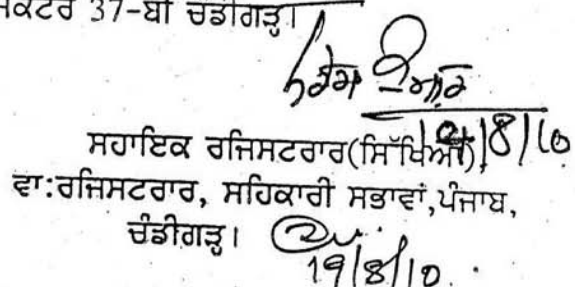 ਸੈਕਟਰ 37-ਬੀ ਚੰਡੀਗੜ੍ਹ।
19/8/10
ਸਹਾਇਕ ਰਜਿਸਟਰਾਰ(ਸਿੱਖਿਆ)
ਵਾ:ਰਜਿਸਟਰਾਰ, ਸਹਿਕਾਰੀ ਸਭਾਵਾਂ,ਪੰਜਾਬ,
ਚੰਡੀਗੜ੍ਹ।
19/8/10